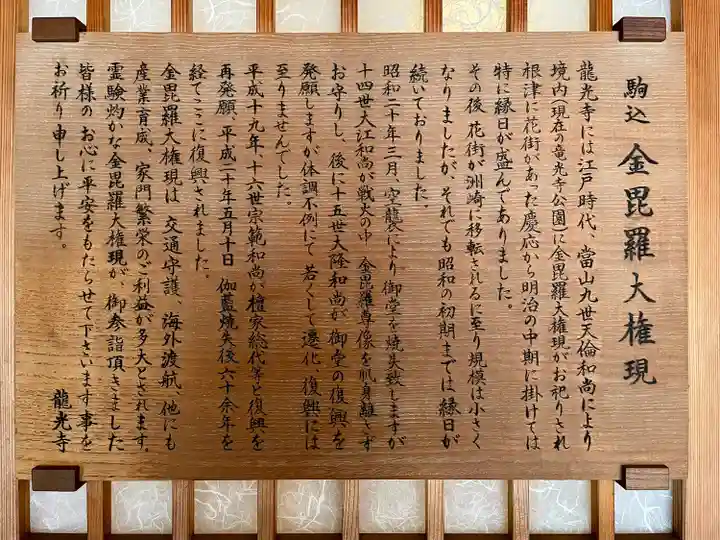 駒込 金毘羅大権現
龍光寺には江戸時代、當山九世天倫和尚により
境内(現在の竜光寺公園)に金毘羅大権現がお祀りされ
根津に花街があった慶応から明治の中期に掛けては
特に縁日が盛んでありました。
その後 花街が洲崎に移転されるに至り規模は小さく
なりましたが、それでも昭和の初期までは縁日が
続いておりました。
昭和二十年三月、空襲により御堂を焼失致しますが
十四世大江和尚が戦火の中 金毘羅尊像を肌身離さず
お守りし、後に十五世大隆和尚が御堂の復興を
発願しますが体調不例にて 若くして遷化、復興には
至りませんでした。
平成十九年、十六世宗範和尚が檀家総代等と復興を
再発願、平成二十年五月十日 伽藍焼失後六十余年を
経てここに復興されました。
金毘羅大権現は 交通守護、海外渡航、他にも
産業育成、家門繁栄のご利益が多大とされます。
霊験灼かな金毘羅大権現が、御参詣頂きました
皆様のお心に平安をもたらせて下さいます事を
お祈り申し上げます。
龍光寺